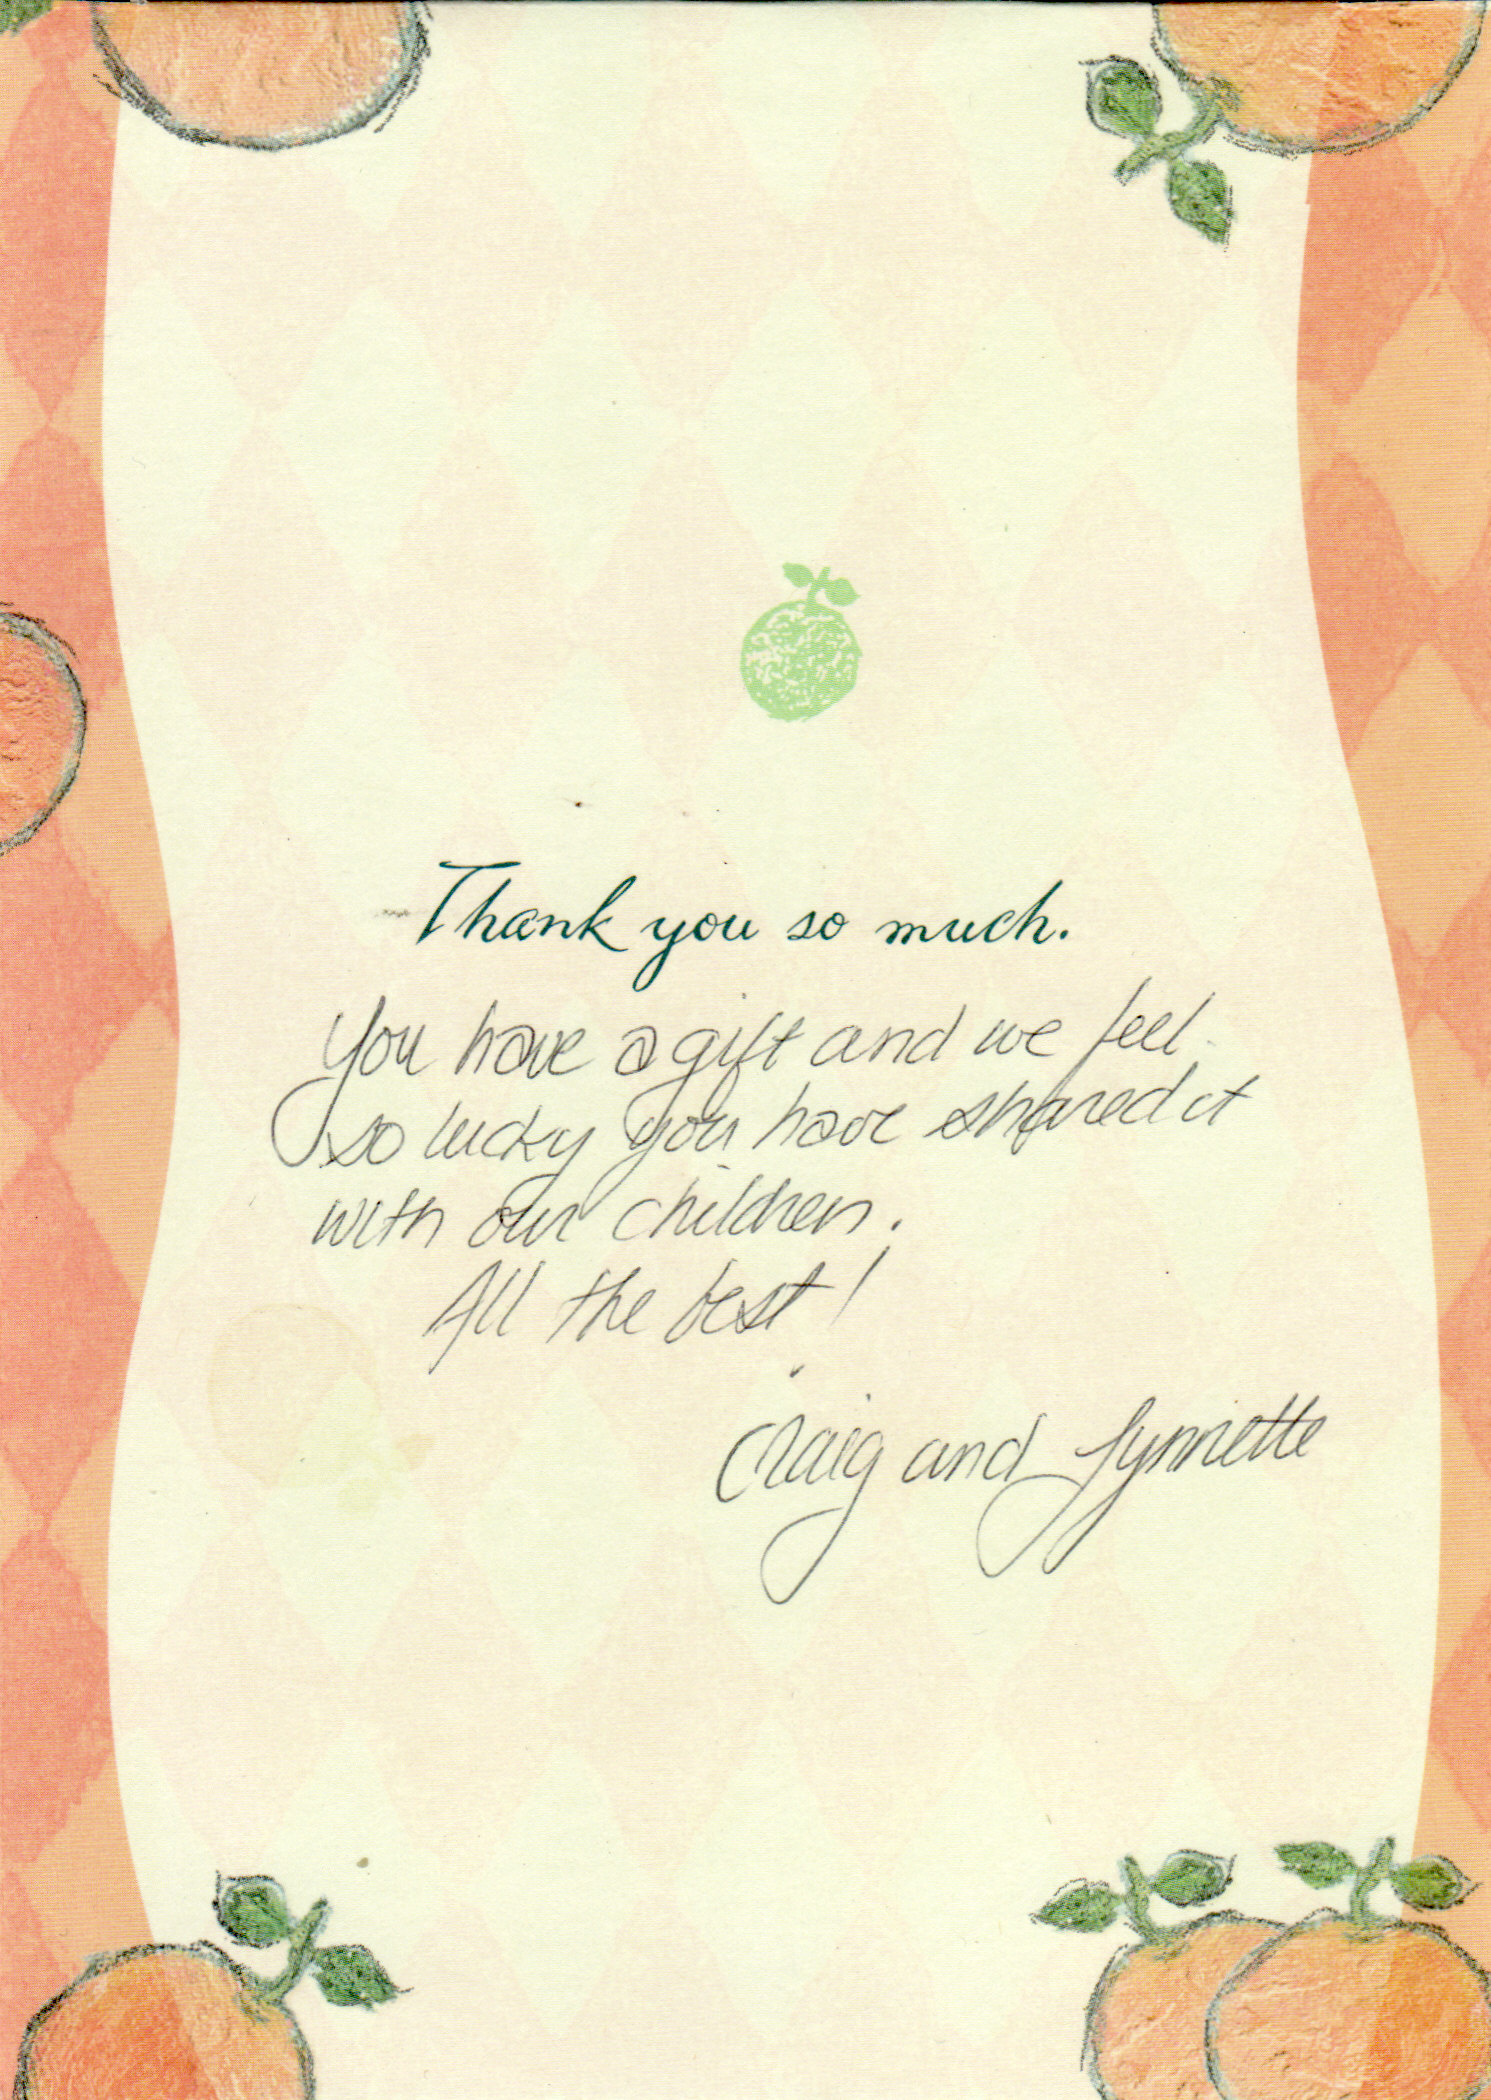 Thank you so much.
You have a gift and we feel
so lucky you have shared it
with our children.
All the best!
Craig and Lynnette